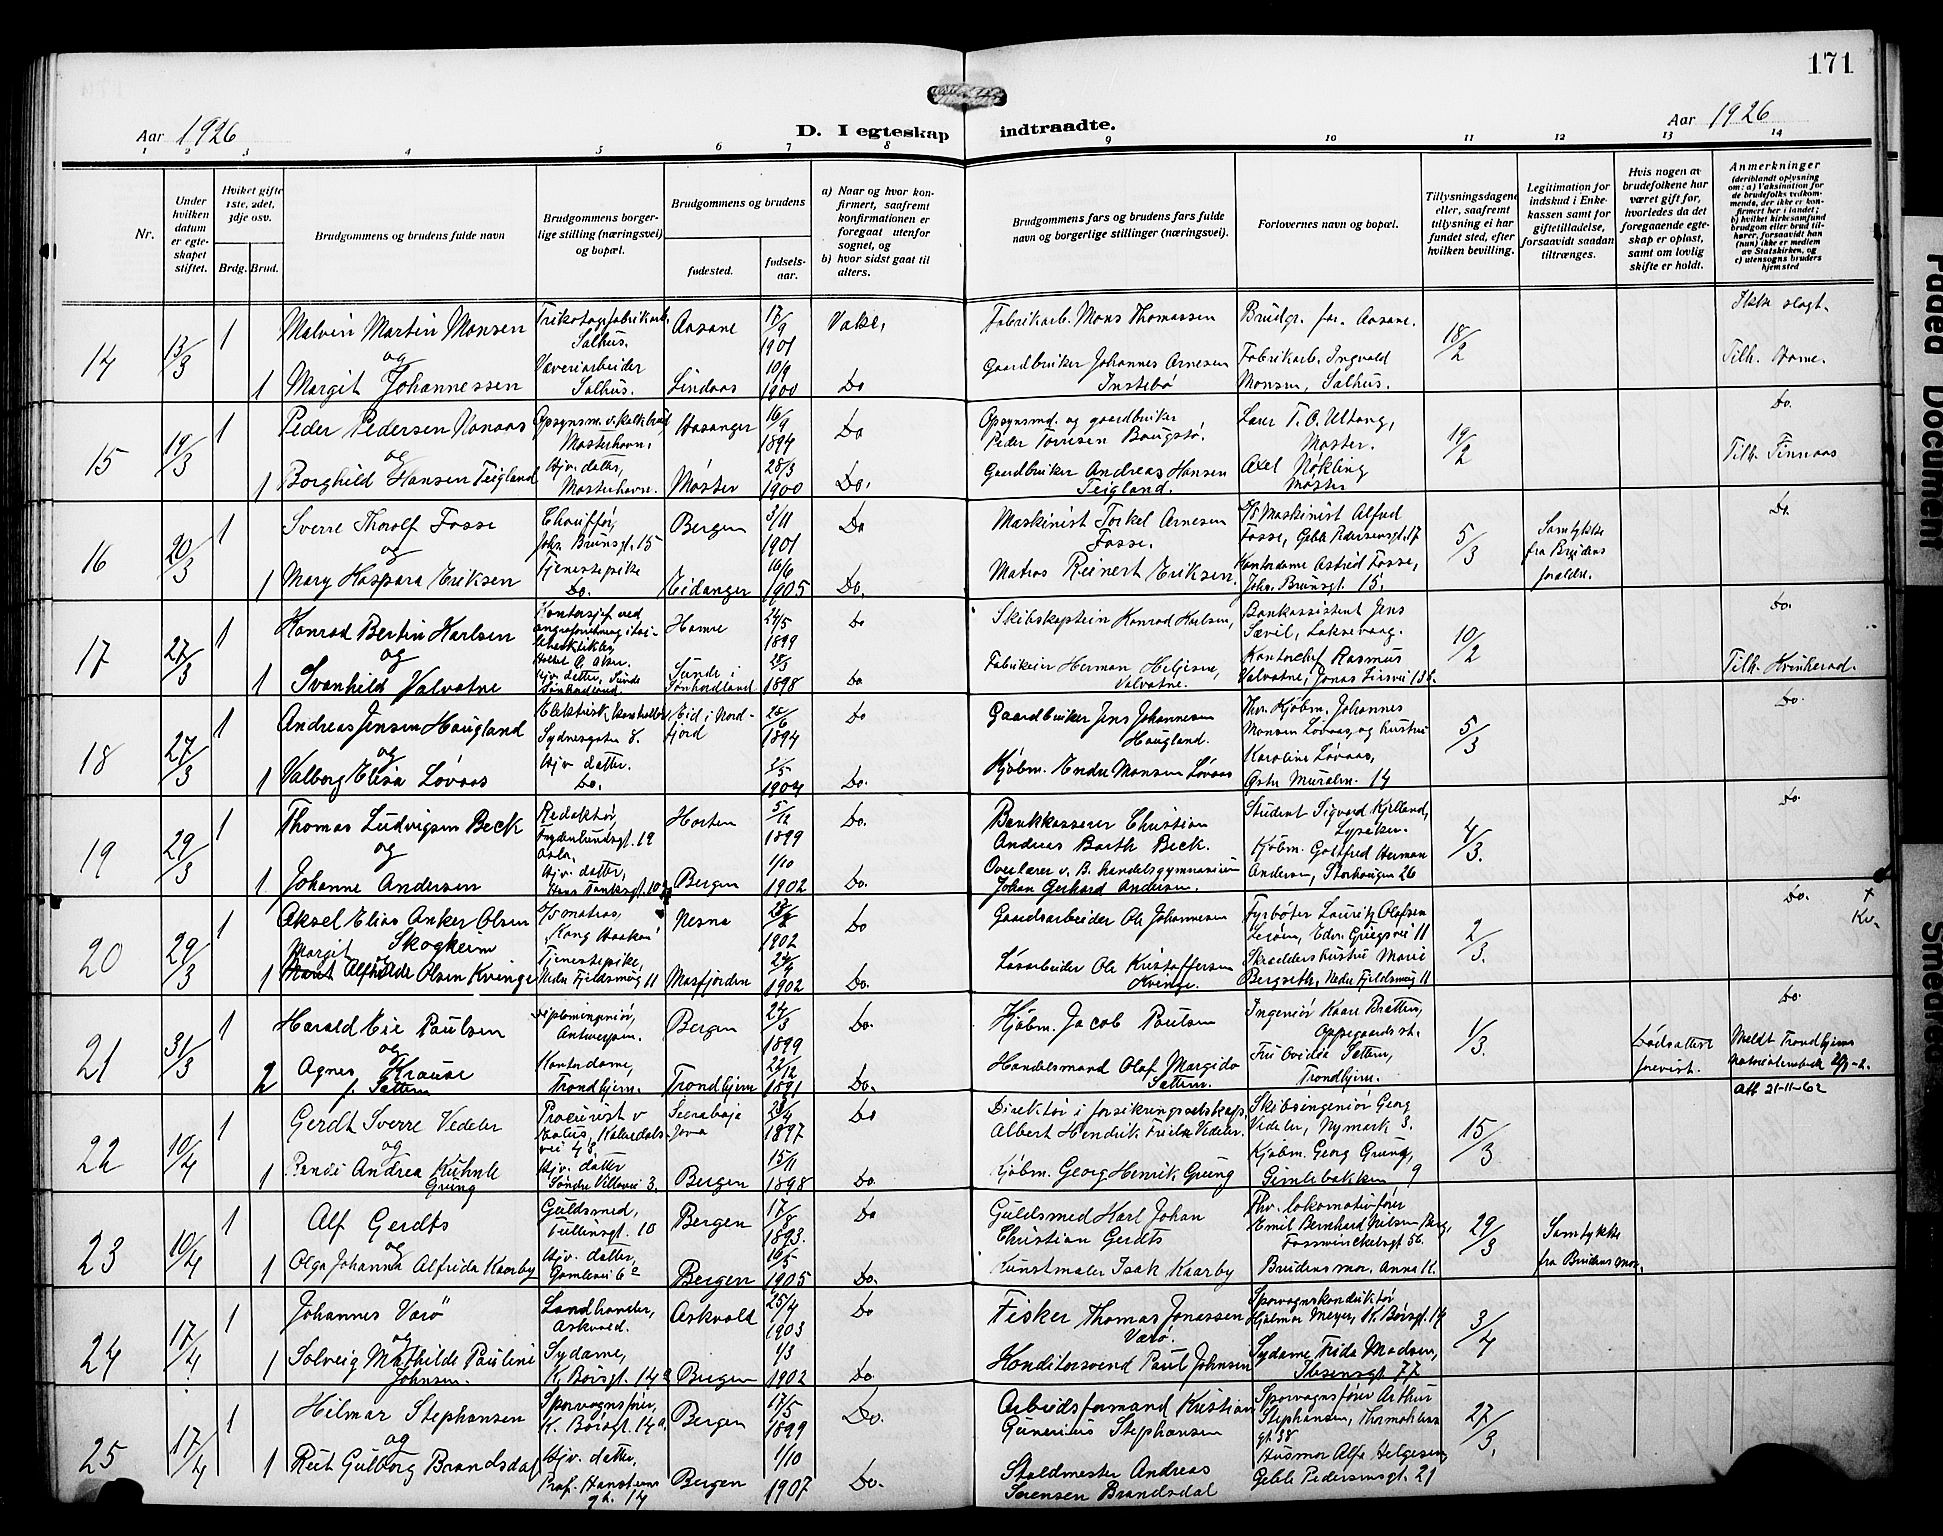 171
Aar 1926
D. I egteskap indtraadte.
Aar 1926
1 2 3 4 5 6 7 8 9 10 11 12 13 14
Nr.
Under hvilken datum er egteskapet stiftet.
Hvilket gifte 1ste, 2det, 3dje osv.
Brdg. Brud.
Brudgommens og brudens fulde navn
Brudgommens borgerlige stilling (næringsvei) og bopæl.
Brudgommens og brudens
fødested.
fødselsaar.
a) Naar og hvor konfirmert, saafremt konfirmationen er foregaat utenfor sognet, og
b) hvor sidst gaat til alters.
Brudgommens fars og brudens fars fulde navn og borgerlige stillinger (næringsvei).
Forlovernes navn og bopæl.
Tillysningsdagene eller, saafremt tillysning ei har fundet sted, efter hvilken bevilling.
Legitimation for indskud i Enkekassen samt for giftetilladelse, forsaavidt saadan tiltrænges.
Hvis nogen av brudefolkene har været gift før, hvorledes da det foregaaende egteskap er opløst, samt om lovlig skifte er holdt.
Anmerkninger
(deriblandt oplysning om: a) Vaksination for de brudefolks vedkommende, der ikke er konfirmert her i landet; b) hvilket kirkesamfund brudgom eller brud tilhører, forsaavidt han (hun) ikke er medlem av Statskirken, og c) utensogns bruders hjemsted
14 13/3 1 Malvin Martin Monsen Trikotagefabrikarb. Salhus. Aasane 17/9 1901 Vaks. Fabrikarb. Mons Thomassen Brudgr. far. Aasane. 18/2 Ikke slegt.
og
1 Margit Johannessen Væveriarbeider Salhus. Lindaas 10/9 1900 Do Gaardbruker Johannes Arnesen Instebö Fabrikarb. Ingvald Monsen, Salhus. Tilh. Hame.
15 19/3 1 Peder Pedersen Opsynsm. v. kalkbrud Mosterhavn. 16/9 1894 Do Opsynsmd. og gaardbruker, Peder 19/2 Do.
og
1 Borghild Hansen Teigland Hjv. datter, Mosterhavn. Møster 28/3 1900 Do. Gaardbruker Andreas Hansen Teigland. Axel Nökling Møster Tilh. Finnaas
16 20/3 1 Sverre Thorolf Fosse Chauffør, Joh. Brunsgt. 15 Bergen 3/11 1901 Do Maskinist Torkel Arnesen Fosse. Maskinist Alfred Fosse, Geble Pedersensgt. 17 5/3 Samtykke fra Brudens forældre. Do.
og
1 Mary Haspara Eriksen Tjenestepike Do. Eidanger 16/6 1905 Do. Matros Reinert Eriksen. Kontordame Astrid Fosse, Joh. Brunsgt. 15.
17 27/3 1 Konrad Bertin Karlsen Hamre 24/5 1899 Do Skibskaptein Konrad Karlsen, Bankassistent Jens Sævil, Laksevaag. 10/2 Do.
og
1 Svanhild Valvatne Hjv. datter, Sunde Sønhordland. Sunde i Sønhordland 1898 Do. Fabrikeier Herman Helgesen Valvatne. Kontorchef Rasmus Valvatne, Jonas Liesvei Tilh. Kvinherad.
18 27/3 1 Andreas Jensen Haugland Elektrisk kontrollør, Sydnesgaten 8. Eid i Nordfjord 1894 Do Gaardbruker Jens Johannesen Haugland. Kjøbm. Johannes Monsen Løvaas, og hustru 5/3 Do.
og
1 Valborg Elisa Løvaas Hjv. datter. Do. 2/5 1904 Do. Kjøbm. Endre Monsen Løvaas Karoline Løvaas, Østre Muralm. 14
19 29/3 1 Thomas Ludvigsen Beck Redaktør, 19 Oslo. Horten 5/12 1899 Do. Bankkasserer Christian Andreas Barth Beck. Student Sigvard Kjelland, Lysaker. 4/3. Do.
og
1. Johanne Andersen Hjv. datter, Hans Tanksgt. 10 Bergen 1/10 1902 Do. Overlærer v. B. handelsgymnasium Johan Gerhard Andersen. Kjøbm. Gottfred Herman Andersen, Storhaugen 26
20 29/3 1 Aksel Elias Anker Olsen Skogheim matros, "Kong Haakon" Nesna 1902 Do Gaardsarbeider Ole Johannesen Fyrbøter Lauritz Olafsen Edv. Griegsvei 11 2/3. Do. + Kv.
Margit og
1 Alfhilde Olsen Kvinge Tjenestepike, Nedre Fjeldsmug 11 Masfjorden 1902 Do. Løsarbeider Ole Kristoffersen Kvinge. Skræddershustru Marie Bergseth, Nedre Fjeldsmug 11
21 31/3 1 Harald Eie Paulsen Diplomingeniør, Antwerpen. Bergen 24/3 1899 Do. Kjøbm. Jacob Paulsen Ingeniør Kaare Bratten, Oppegaard st. 1/3. Dødsattest forevist. Do.
og
2 Agnes Krause f. Sættem Kontordame, Trondhjem. Trondhjem 22/12 1891 Do. Handelsmand Olaf Margido Sættem. Fru Ovidia Sættem, Trondhjem. Meldt Trondhjems
Att 21-11-62
22 10/4 1 Gerdt Sverre Vedeler Procurist v Kalvedalsvei 48. Soerabaja Java 1897 Do Direktør i forsikringsselskap. Albert Hendrik Vedeler. Skibsingeniør Georg Vedeler, Nymark 3. 15/3
og
1 Andrea Kuhnle Grung Hjv. datter Søndre Villavei 3. Bergen 15/11 1898 Do. Kjøbm. Georg Henrik Grung Kjøbm. Georg Grung, Gimlebakken 9
23 10/4 1 Alf Gerdts Guldsmed, Tullinsgt. 10 Bergen 17/8 1893. Do Guldsmed Karl Johan Christian Gerdts Fhv. lokomotivfører Emil Bernhard Nilsen Berg, Fosswinckelsgt 56. 29/3 Samtykke fra Brudens mor.
og
1 Olga Johanna Alfrida Kaarby Hjv. datter, Gamlevei 6a Bergen 16/5 1905 Do. Kunstmaler Isak Kaarby Brudens mor. Anna K.
24 17/4 1 Johannes Værö Landhandler, Askvold. Askvold 25/4 1903 Do Fisker Thomas Jonassen Værö. Sporvognskonduktør Hjalmar Meyer, K. Börsgt. 14 3/4
og
1 Solveig Mathilde Pauline Johnsen. Sydame, K. Börsgt. 14a Bergen 1/3 1902 Do. Konditorsvend Paul Johnsen Sydame Frida Madsen, Ibsensgt 77
25 17/4 1 Hilmar Stephansen Sporvognsfører, K. Börsgt. 14a Bergen 17/5 1899 Do. Arbeidsformand Kristian Gunerius Stephansen Sporvognsfører Arthur Stephansen, Thormøhlens gt 38 27/3.
og
1 Rut Gulborg Brandsdal Hjv. datter, Prof. Hansteens gt. 14 Bergen 1/10 1907 Do. Staldmester Andreas Sørensen Brandsdal Husmor Alfa Helgesen Geble Pedersensgt. 21
Faded Document
Smedet